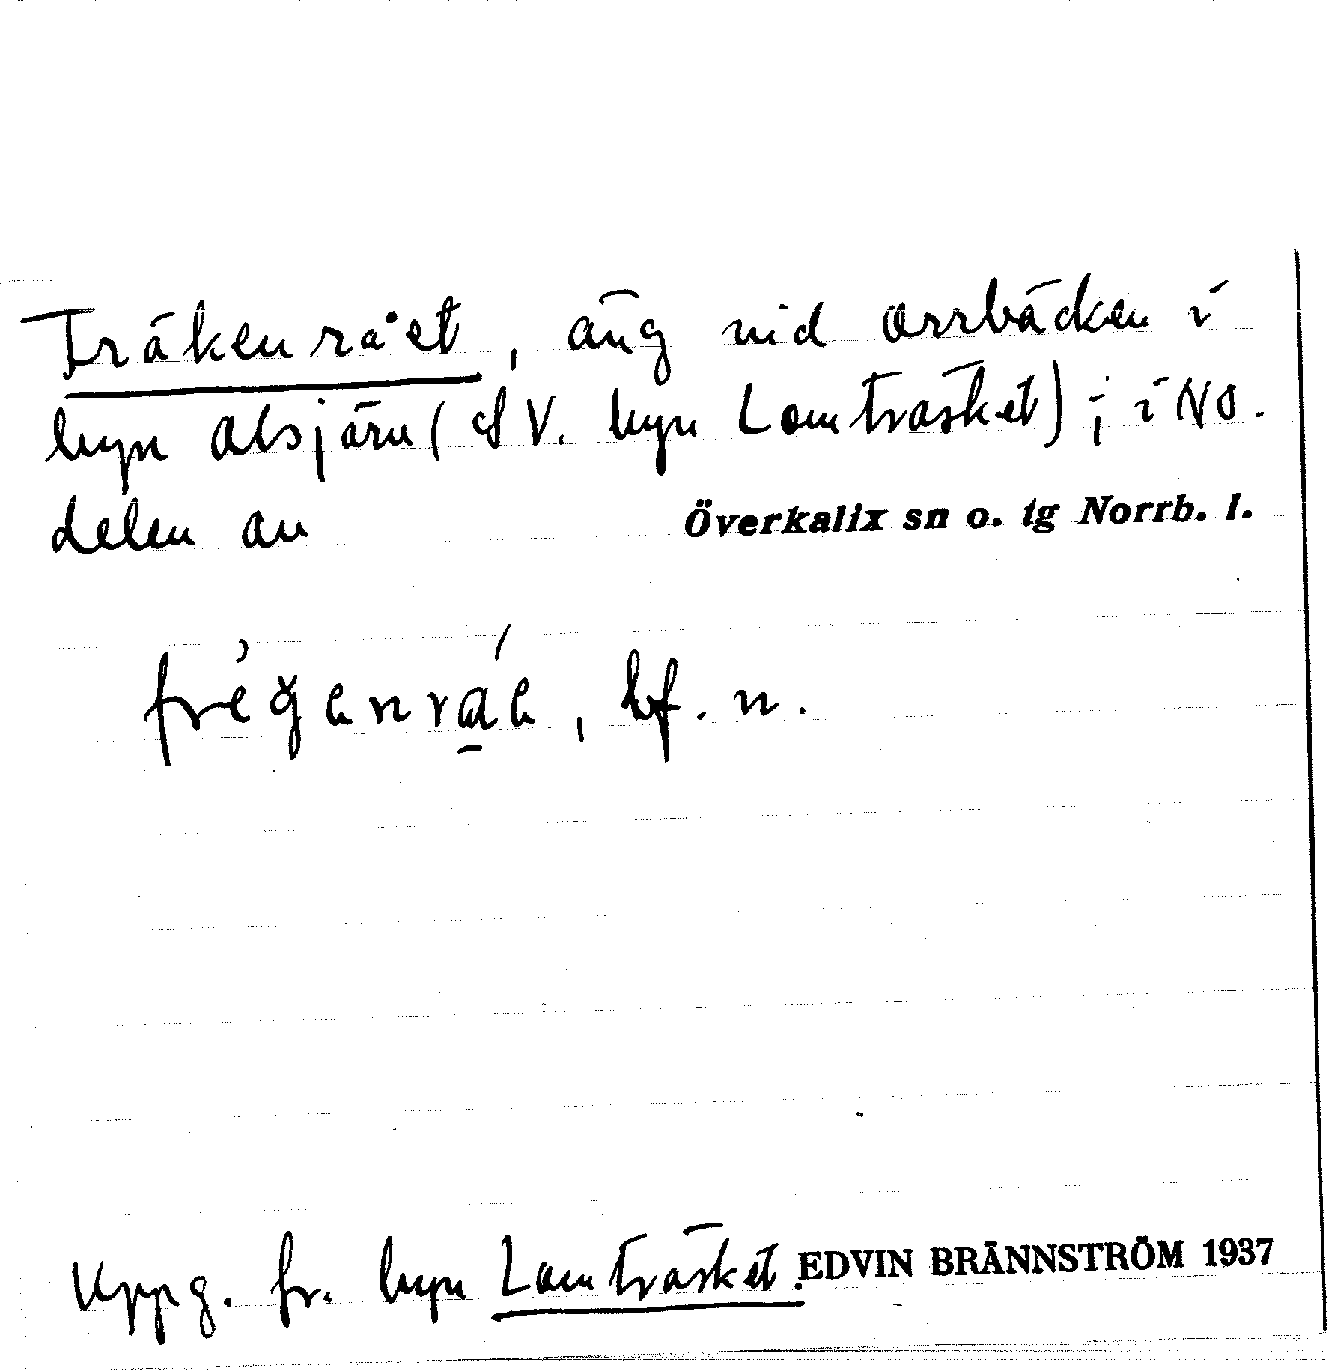 Fräkenrået, äng vid Orrbäcken i
byn Absjärn (SV. byn Lomträsket); i NO.
delen av Överkalix sn o. tg Norrb. l.
bf. n.
Uppg. fr. byn Lomträsket. EDVIN BRÄNNSTRÖM 1937